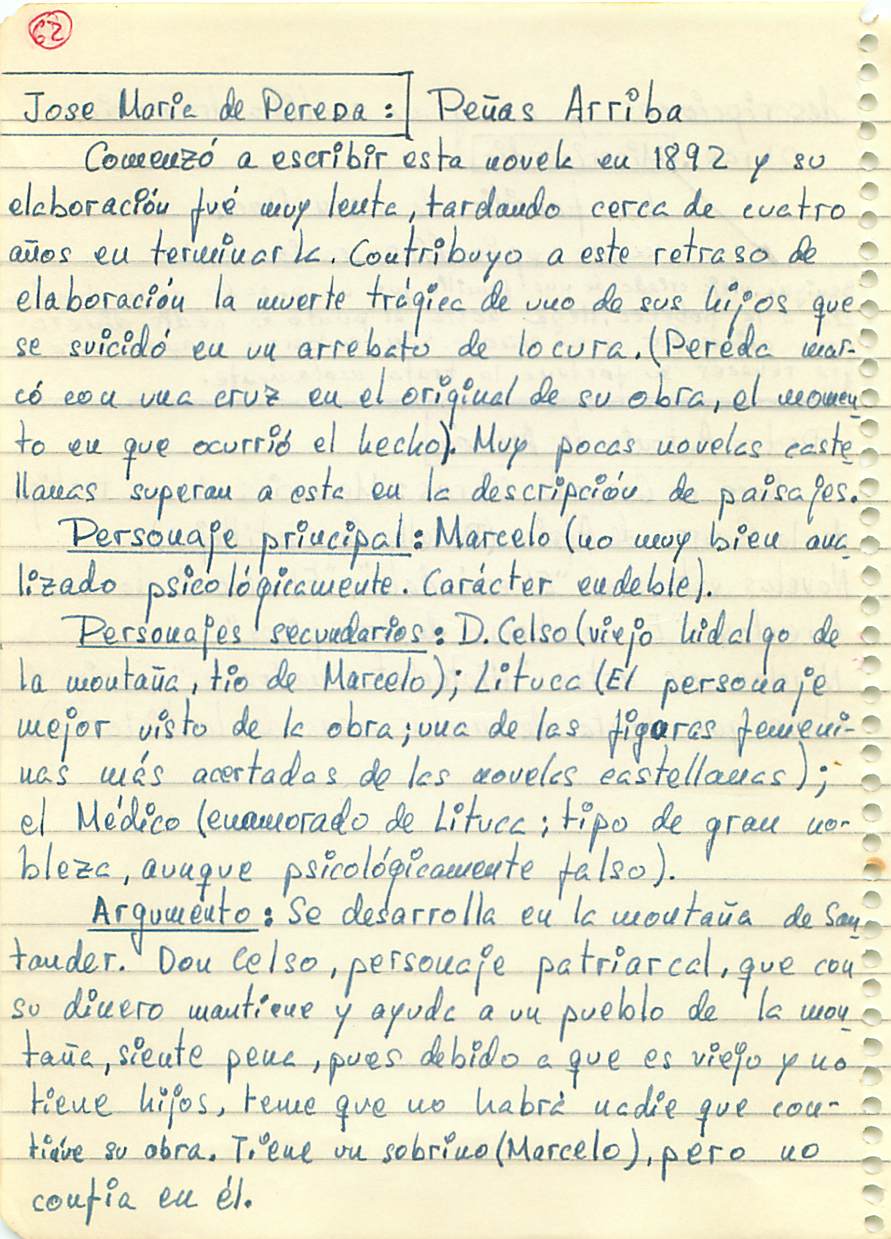 62
Jose Maria de Pereda: Peñas Arriba
Comenzó a escribir esta novela en 1892 y su
elaboración fué muy lenta, tardando cerca de cuatro
años en terminarla. Contribuyo a este retraso de
elaboración la muerte trágica de uno de sus hijos que
se suicidó en un arrebato de locura. (Pereda mar-
có con una cruz en el original de su obra, el momen-
to en que ocurrió el hecho). Muy pocas novelas caste-
llanas superan a esta en la descripción de paisajes.
Personaje principal: Marcelo (no muy bien ana-
lizado psicológicamente. Carácter endeble).
Personajes secundarios: D. Celso (viejo hidalgo de
la montaña, tio de Marcelo); Lituca (El personaje
mejor visto de la obra; una de las figuras femeni-
nas más acertadas de las novelas castellanas);
el Médico (enamorado de Lituca; tipo de gran no-
bleza, aunque psicológicamente falso).
Argumento: Se desarrolla en la montaña de San-
tander. Don Celso, personaje patriarcal, que con
su dinero mantiene y ayuda a un pueblo de la mon-
taña, siente pena, pues debido a que es viejo y no
tiene hijos, teme que no habrá nadie que con-
tinúe su obra. Tiene un sobrino (Marcelo), pero no
confia en él.